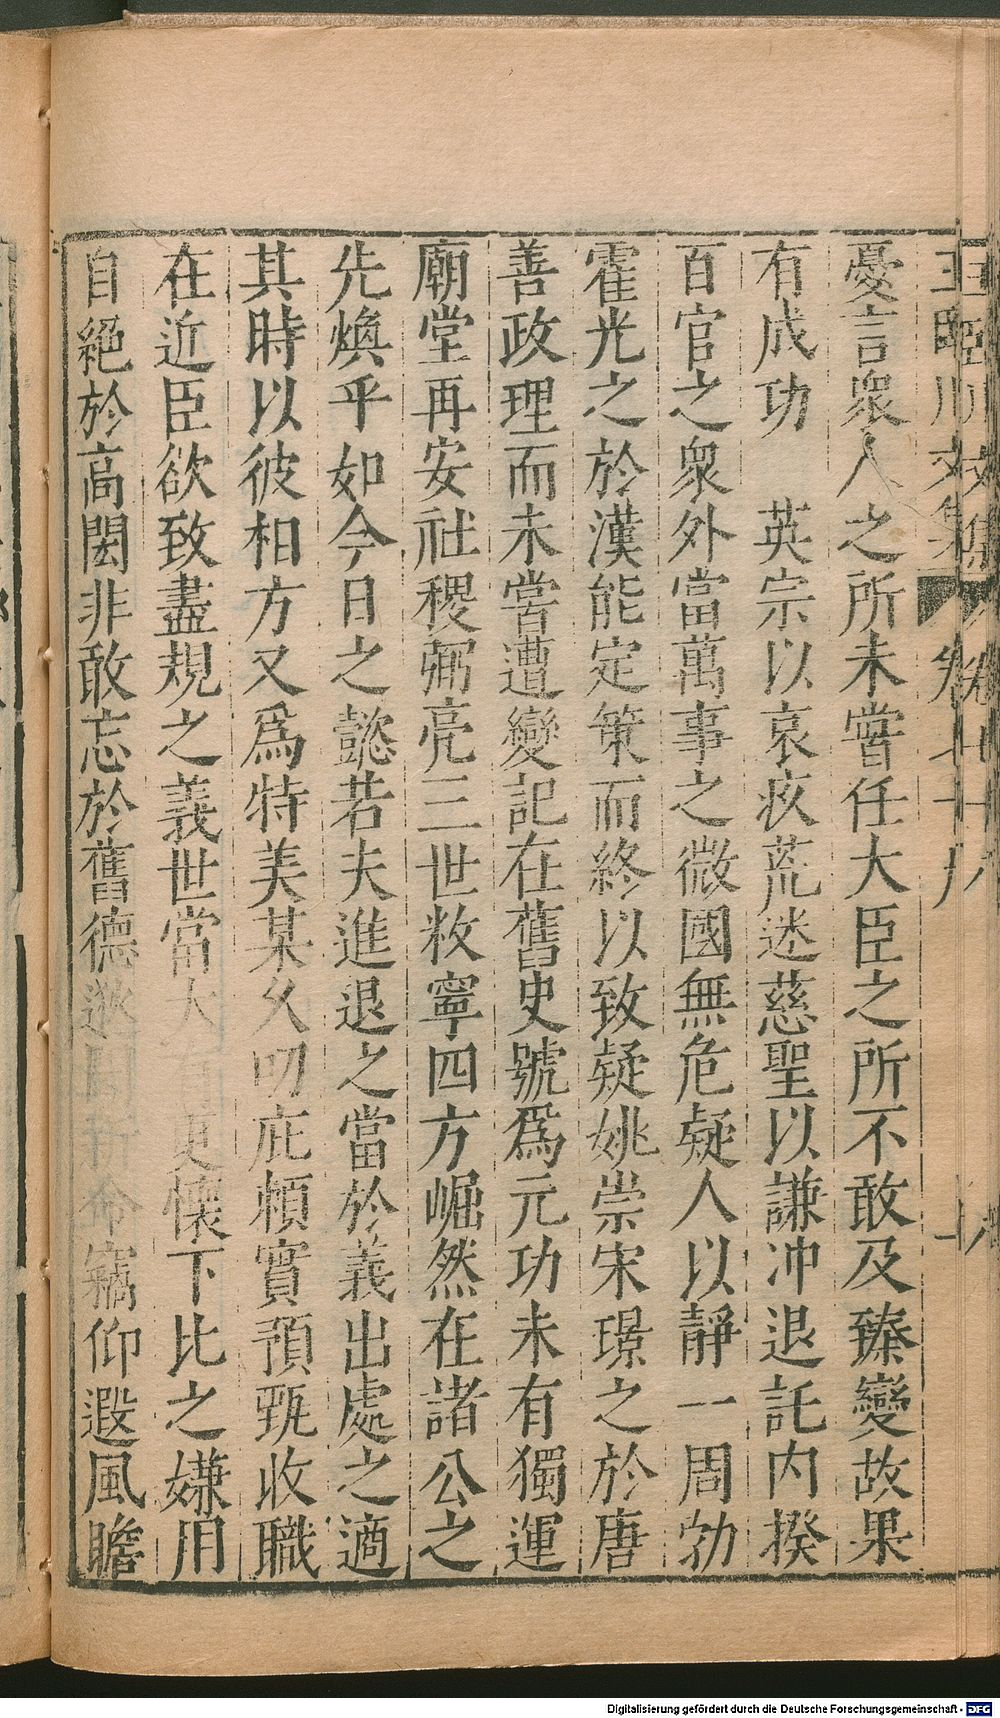 憂言衆人之所未嘗任大臣之所不敢及臻變故果
有成功　英宗以哀疚荒迷慈聖以謙冲退託内揆
百官之衆外當萬事之微國無危疑人以靜一周勃
霍光之於漢能定策而終以致疑姚崇宋璟之於唐
善政理而未嘗遭變記在舊史號爲元功未有獨運
廟堂再安社稷弼亮三世敉寧四方崛然在諸公之
先煥乎如今日之懿若夫進退之當於義出處之適
其時以彼相方又爲特美某久叨庇頼實預甄收職
在近臣欲致盡規之義世當大更懷下比之嫌用
自絕於高閎非敢忘於舊德逖命竊仰遐風瞻
Digitalisierung gefördert durch die Deutsche Forschungsgemeinschaft - DFG